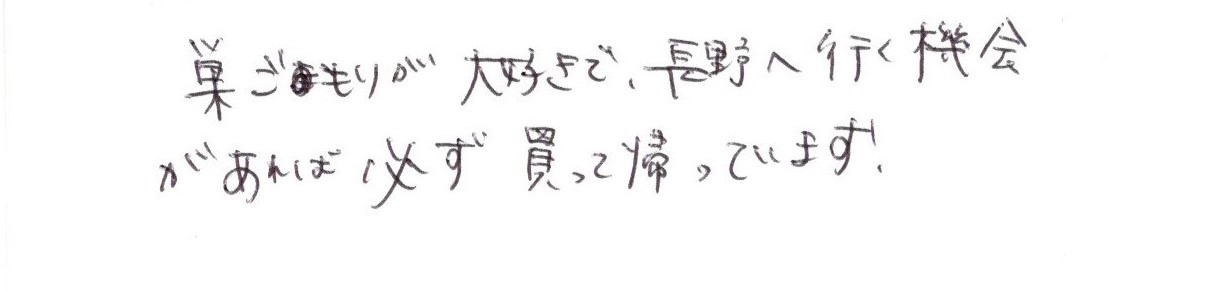 巣ごもりが大好きで、長野へ行く機会
があれば必ず買って帰っています!